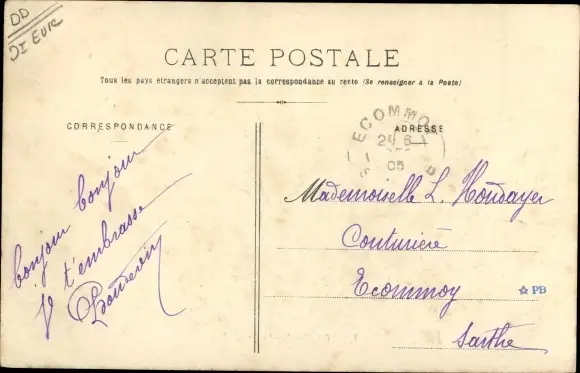 DD
Dt Eure
CARTE POSTALE
Tous les pays étrangers n'acceptent pas la correspondance au recto (Se renseigner à la Poste)
CORRESPONDANCE
ADRESSE
ECOMMOY
25 6
05
bonjour bonjour
Je t'embrasse
Mademoiselle L. Houdayer
Couturière
Ecommoy
Sarthe
PB